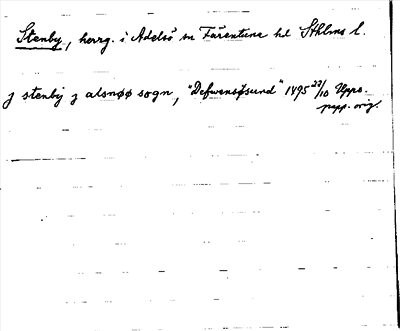 Stenby, herrg. i Adelsö sn Färentuna hd Sthlms l.
J stenbij j alsnøø sogn, "Defwensøsund" 1495 22/10 Upps.
papp. orig.